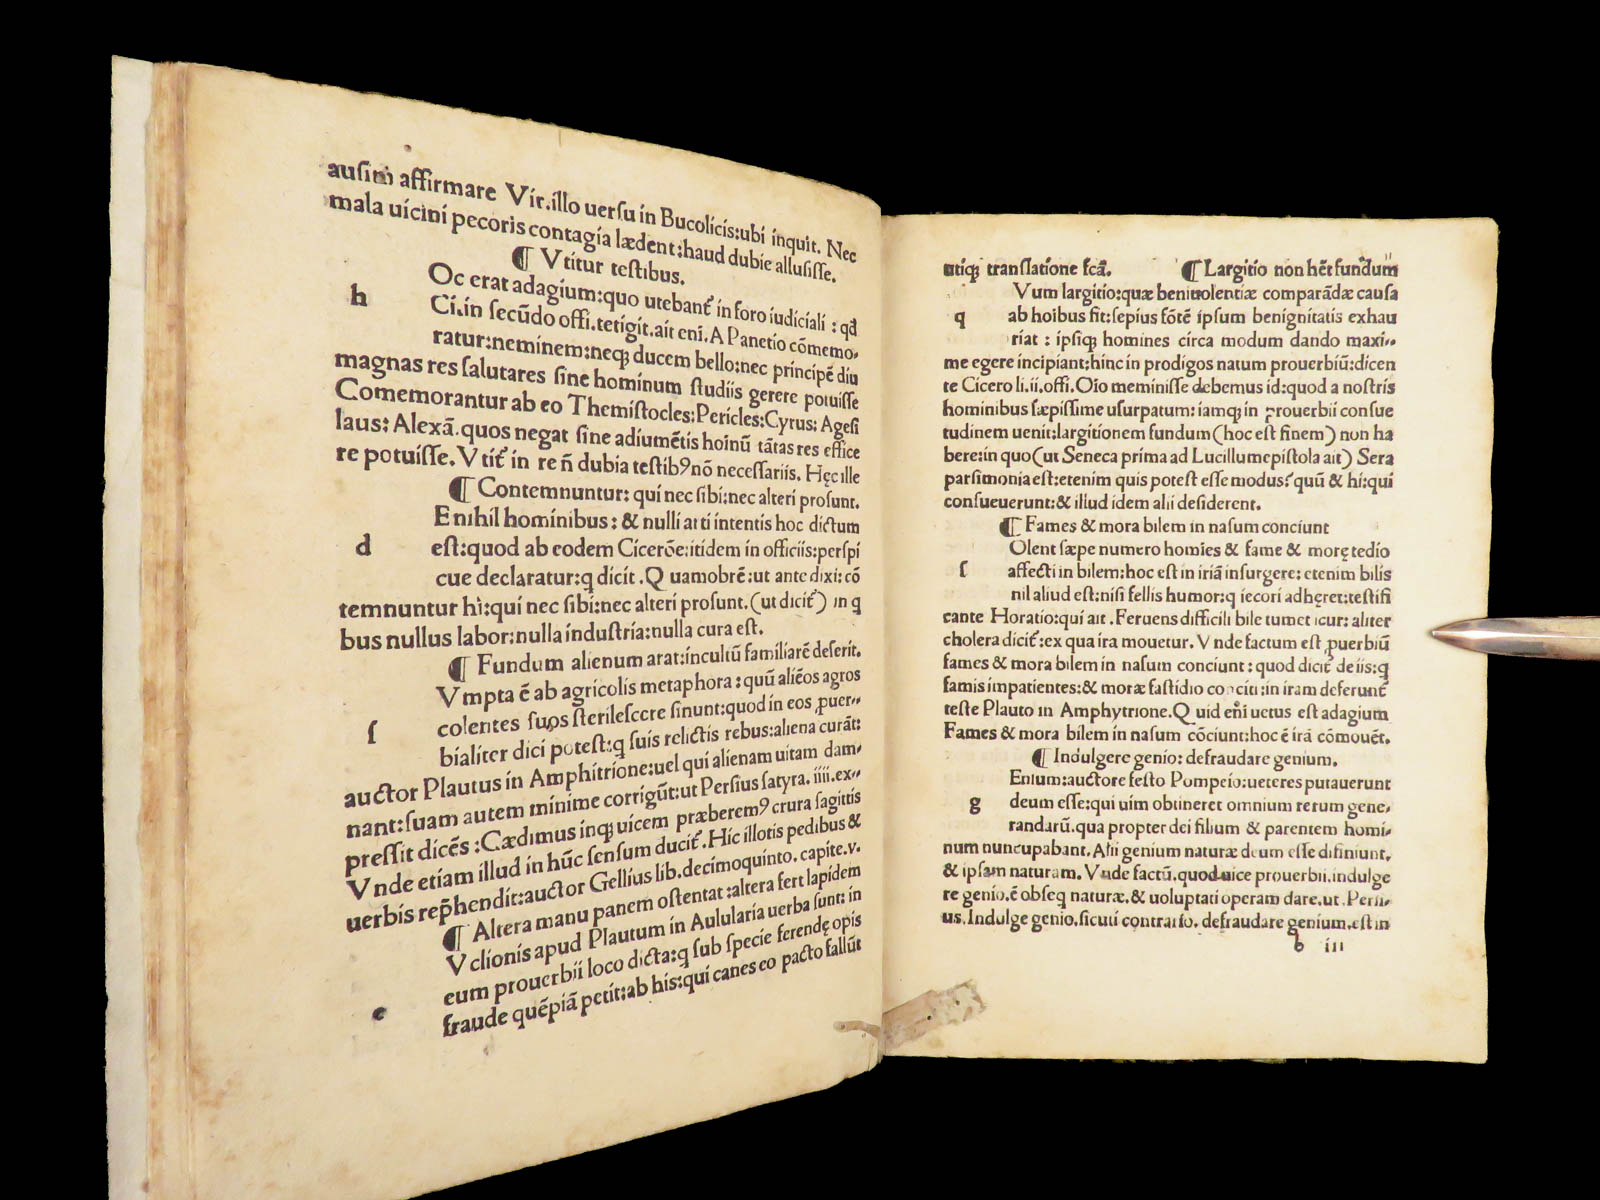 ausim affirmare Vir.illo uersu in Bucolicis:ubi inquit. Nec
mala uicini pecoris contagia lædent:haud dubie allusisse.
¶ Vtitur testibus.
h Oc erat adagium:quo utebant᷑ in foro iudiciali : qđ
Ci.in secūdo offi.tetigit.ait eni. A Panetio cōmemo-
ratur:neminem:neq; ducem bello:nec principē diu
magnas res salutares sine hominum studiis gerere potuisse
Comemorantur ab eo Themistocles:Pericles:Cyrus: Agesi
laus: Alexā.quos negat sine adiumētis hoinū tātas res effice
re potuisse.Vtit᷑ in re ñ dubia testibꝰ nō necessariis. Hęc ille
¶ Contemnuntur: qui nec sibi:nec alteri prosunt.
d E nihil hominibus: & nulli arti intentis hoc dictum
est:quod ab eodem Cicerōe:itidem in officiis:perspi
cue declaratur:q dicit .Quamobrē:ut ante dixi: cō
temnuntur hi:qui nec sibi:nec alteri prosunt.(ut dicit᷑) in q
bus nullus labor:nulla industria:nulla cura est.
¶ Fundum alienum arat:incultū familiarē deserit.
s Vmpta ē ab agricolis metaphora : quū aliēos agros
colentes suos sterilescere sinunt:quod in eos ꝓuer-
bialiter dici potest:q suis relictis rebus:aliena curāt:
auctor Plautus in Amphitrione:uel qui alienam uitam dam-
nant:suam autem minime corrigūt:ut Persius satyra. iiii.ex-
pressit dicēs : Cædimus inq; uicem præberemꝰ crura sagittis
Vnde etiam illud in hūc sensum ducit᷑.Hic illotis pedibus &
uerbis rep̄hendit:auctor Gellius lib.decimoquinto. capite.v.
¶ Altera manu panem ostentat :altera fert lapidem
e Vclionis apud Plautum in Aulularia uerba sunt: in
eum prouerbii loco dicta:q sub specie ferendę opis
fraude quēpiā petit:ab his:qui canes eo pacto fallūt
utiq; translatione fcā. ¶ Largitio non hēt fundum
q Vum largitio:quæ beniuolentiæ comparādæ causa
ab hoibus fit:sepius fōtē ipsum benignitatis exhau
riat : ipsiq; homines circa modum dando maxi-
me egere incipiant:hinc in prodigos natum prouerbiū:dicen
te Cicero li.ii.offi.Oio meminisse debemus id:quod a nostris
hominibus sæpissime usurpatum: iamq; in ꝓrouerbii consue
tudinem uenit:largitionem fundum (hoc est finem) non ha
bere:in quo(ut Seneca prima ad Lucillumepistola ait) Sera
parsimonia est:etenim quis potest esse modus? quū & hi:qui
consueuerunt:& illud idem alii desiderent.
¶ Fames & mora bilem in nasum conciunt
s Olent sæpe numero homies & fame & morę tedio
affecti in bilem:hoc est in iriā insurgere: etenim bilis
nil aliud est:nisi fellis humor:q iecori adhęret:testifi
cante Horatio:qui ait. Feruens difficili bile tumet icur: aliter
cholera dicit᷑:ex qua ira mouetur. Vnde factum est ꝓuerbiū
fames & mora bilem in nasum conciunt : quod dicit᷑ de iis:q
famis impatientes:& moræ fastidio conciti:in iram deferunt᷑
teste Plauto in Amphytrione.Quid eni uetus est adagium
Fames & mora bilem in nasum cōciunt:hoc ē irā cōmouēt.
¶ Indulgere genio: defraudare genium.
g Enium:auctore festo Pompeio:ueteres putauerunt
deum esse:qui uim obtineret omnium rerum gene-
randarū.qua propter dei filium & parentem homi-
num nuncupabant. Alii genium naturæ deum esse difiniunt.
& ipsam naturam. Vnde factū.quod uice prouerbii.indulge
re genio.ē obseq naturæ.& uoluptati operam dare.ut. Persi-
us.Indulge genio.sicuti contrario. defraudare genium.est in
b iii